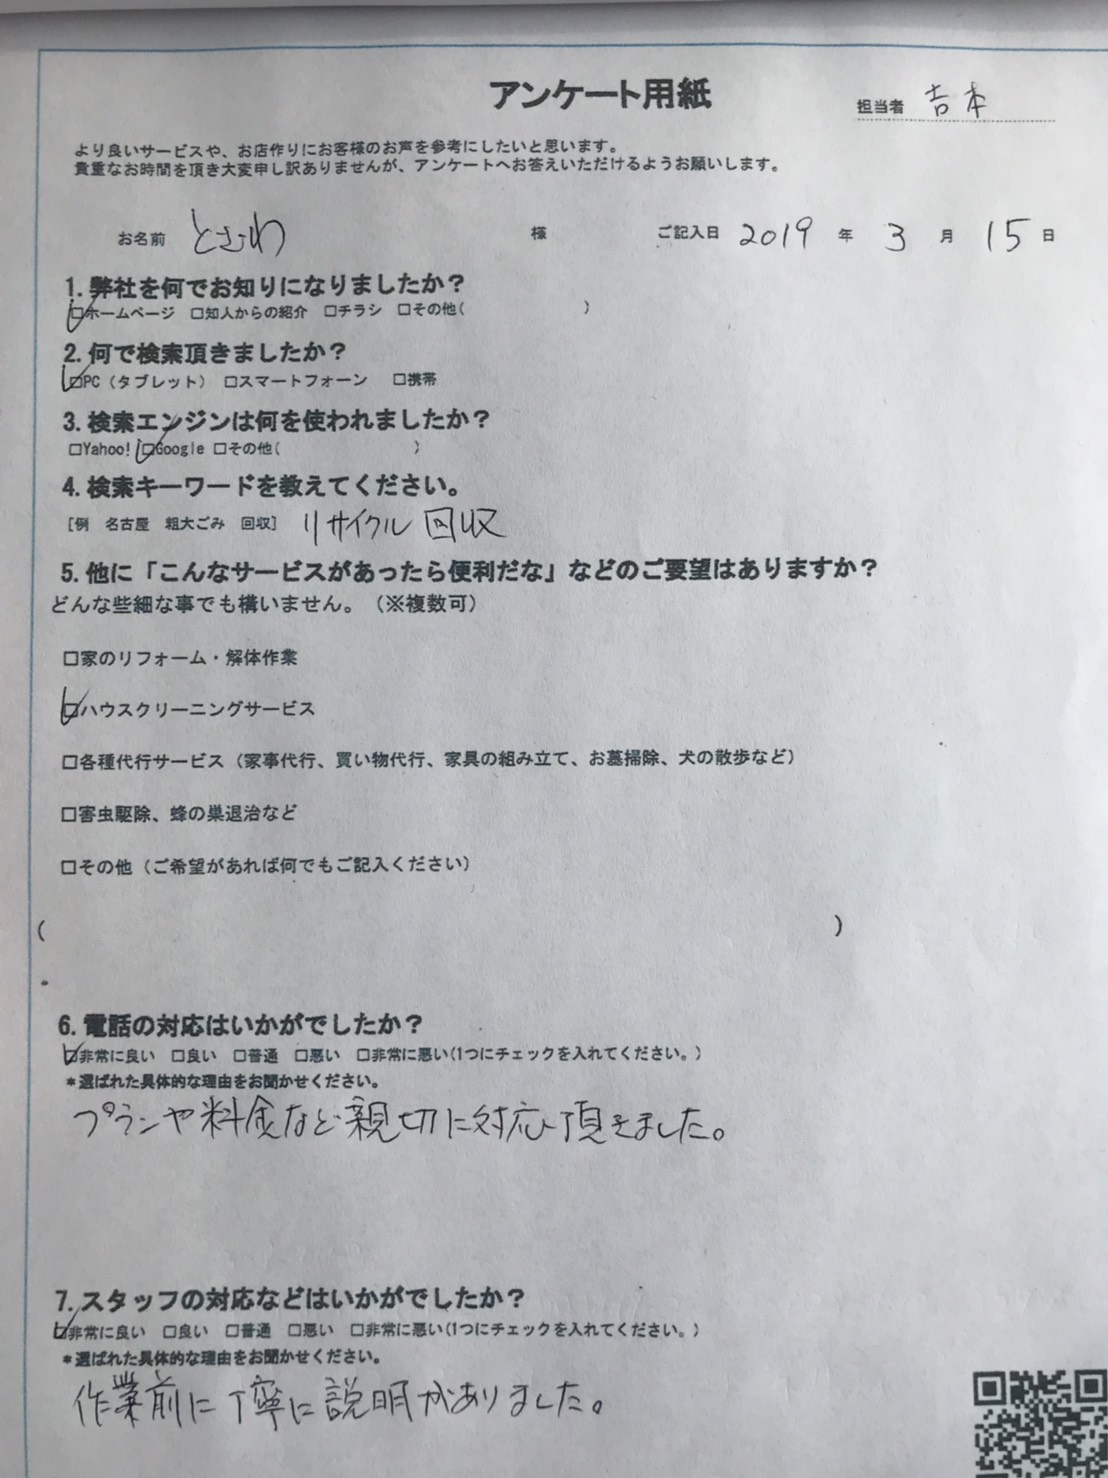 アンケート用紙
担当者 吉本
より良いサービスや、お店作りにお客様のお声を参考にしたいと思います。
貴重なお時間を頂き大変申し訳ありませんが、アンケートへお答えいただけるようお願いします。
お名前 とさわ 様 ご記入日 2019 年 3 月 15 日
1.弊社を何でお知りになりましたか？
☑ホームページ □知人からの紹介 □チラシ □その他( )
2.何で検索頂きましたか？
☑PC（タブレット） □スマートフォーン □携帯
3.検索エンジンは何を使われましたか？
□Yahoo! ☑Google □その他( )
4.検索キーワードを教えてください。
[例 名古屋 粗大ごみ 回収] リサイクル 回収
5.他に「こんなサービスがあったら便利だな」などのご要望はありますか？
どんな些細な事でも構いません。（※複数可）
□家のリフォーム・解体作業
☑ハウスクリーニングサービス
□各種代行サービス（家事代行、買い物代行、家具の組み立て、お墓掃除、犬の散歩など）
□害虫駆除、蜂の巣退治など
□その他（ご希望があれば何でもご記入ください）
( )
6.電話の対応はいかがでしたか？
☑非常に良い □良い □普通 □悪い □非常に悪い(1つにチェックを入れてください。)
＊選ばれた具体的な理由をお聞かせください。
プランや料金など親切に対応頂きました。
7.スタッフの対応などはいかがでしたか？
☑非常に良い □良い □普通 □悪い □非常に悪い(1つにチェックを入れてください。)
＊選ばれた具体的な理由をお聞かせください。
作業前に丁寧に説明がありました。